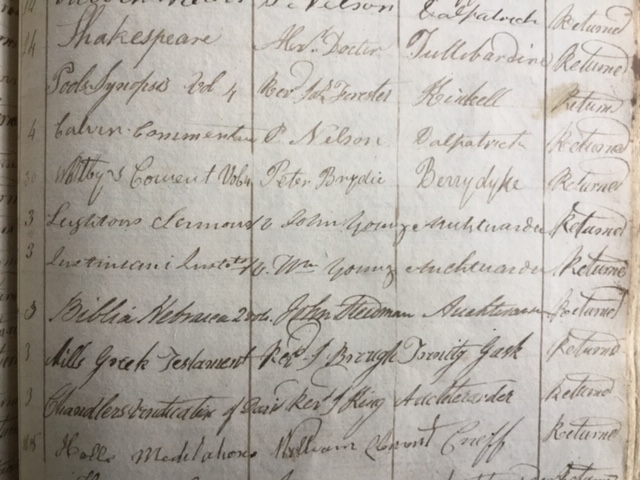 Nelson Dalpatrick Returned
14 Shakespeare Alexr Doctor Tullibardine Returned
Pools Synopsis Vol 4 Revr Jas Forester Kinkell Return
4 Calvin Commentu P. Nelson Dalpatrick Returned
Whitby's Coment Vol 4 Peter Brydie Berrydyke Returned
3 Leightons Sermons John Young Auchterarder Returned
3 Justiniani Wm Young Auchterarder Returned
3 Biblia Hebraica 2 vols. John Steedman Auchterarder Returned
3 Mills Greek Testament Revr J Brough Trinity Gask Returned
3 Chandlers Vindication of Revr J King Auchterarder Returned
Halls Meditations William Crieff Returned